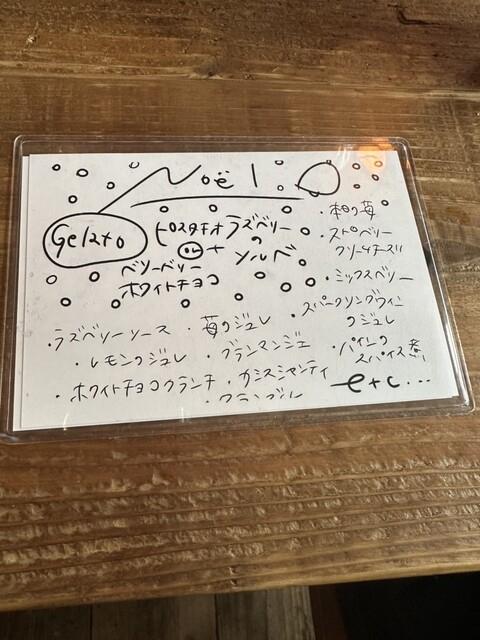 Noël
Gelato
ピスタチオ
or
ベリーベリー
ホワイトチョコ
+
ラズベリー
の
ソルベ
・苺
・ストロベリー
クリームチーズ
・ミックスベリー
・スパークリングワイン
のジュレ
・パインの
スパイス煮
・ラズベリーソース
・苺のジュレ
・レモンのジュレ
・ブランマンジェ
・ホワイトチョコクランチ
・カシスシャンティ
・クランブル
etc...